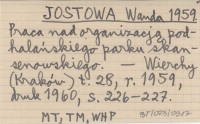 JOSTOWA Wanda 1959
Praca nad organizacją pod-
halańskiego parku skan-
senowskiego. — Wierchy
(Kraków) t. 28, r. 1959,
druk 1960, s. 226-227.
MT, TM, WHP